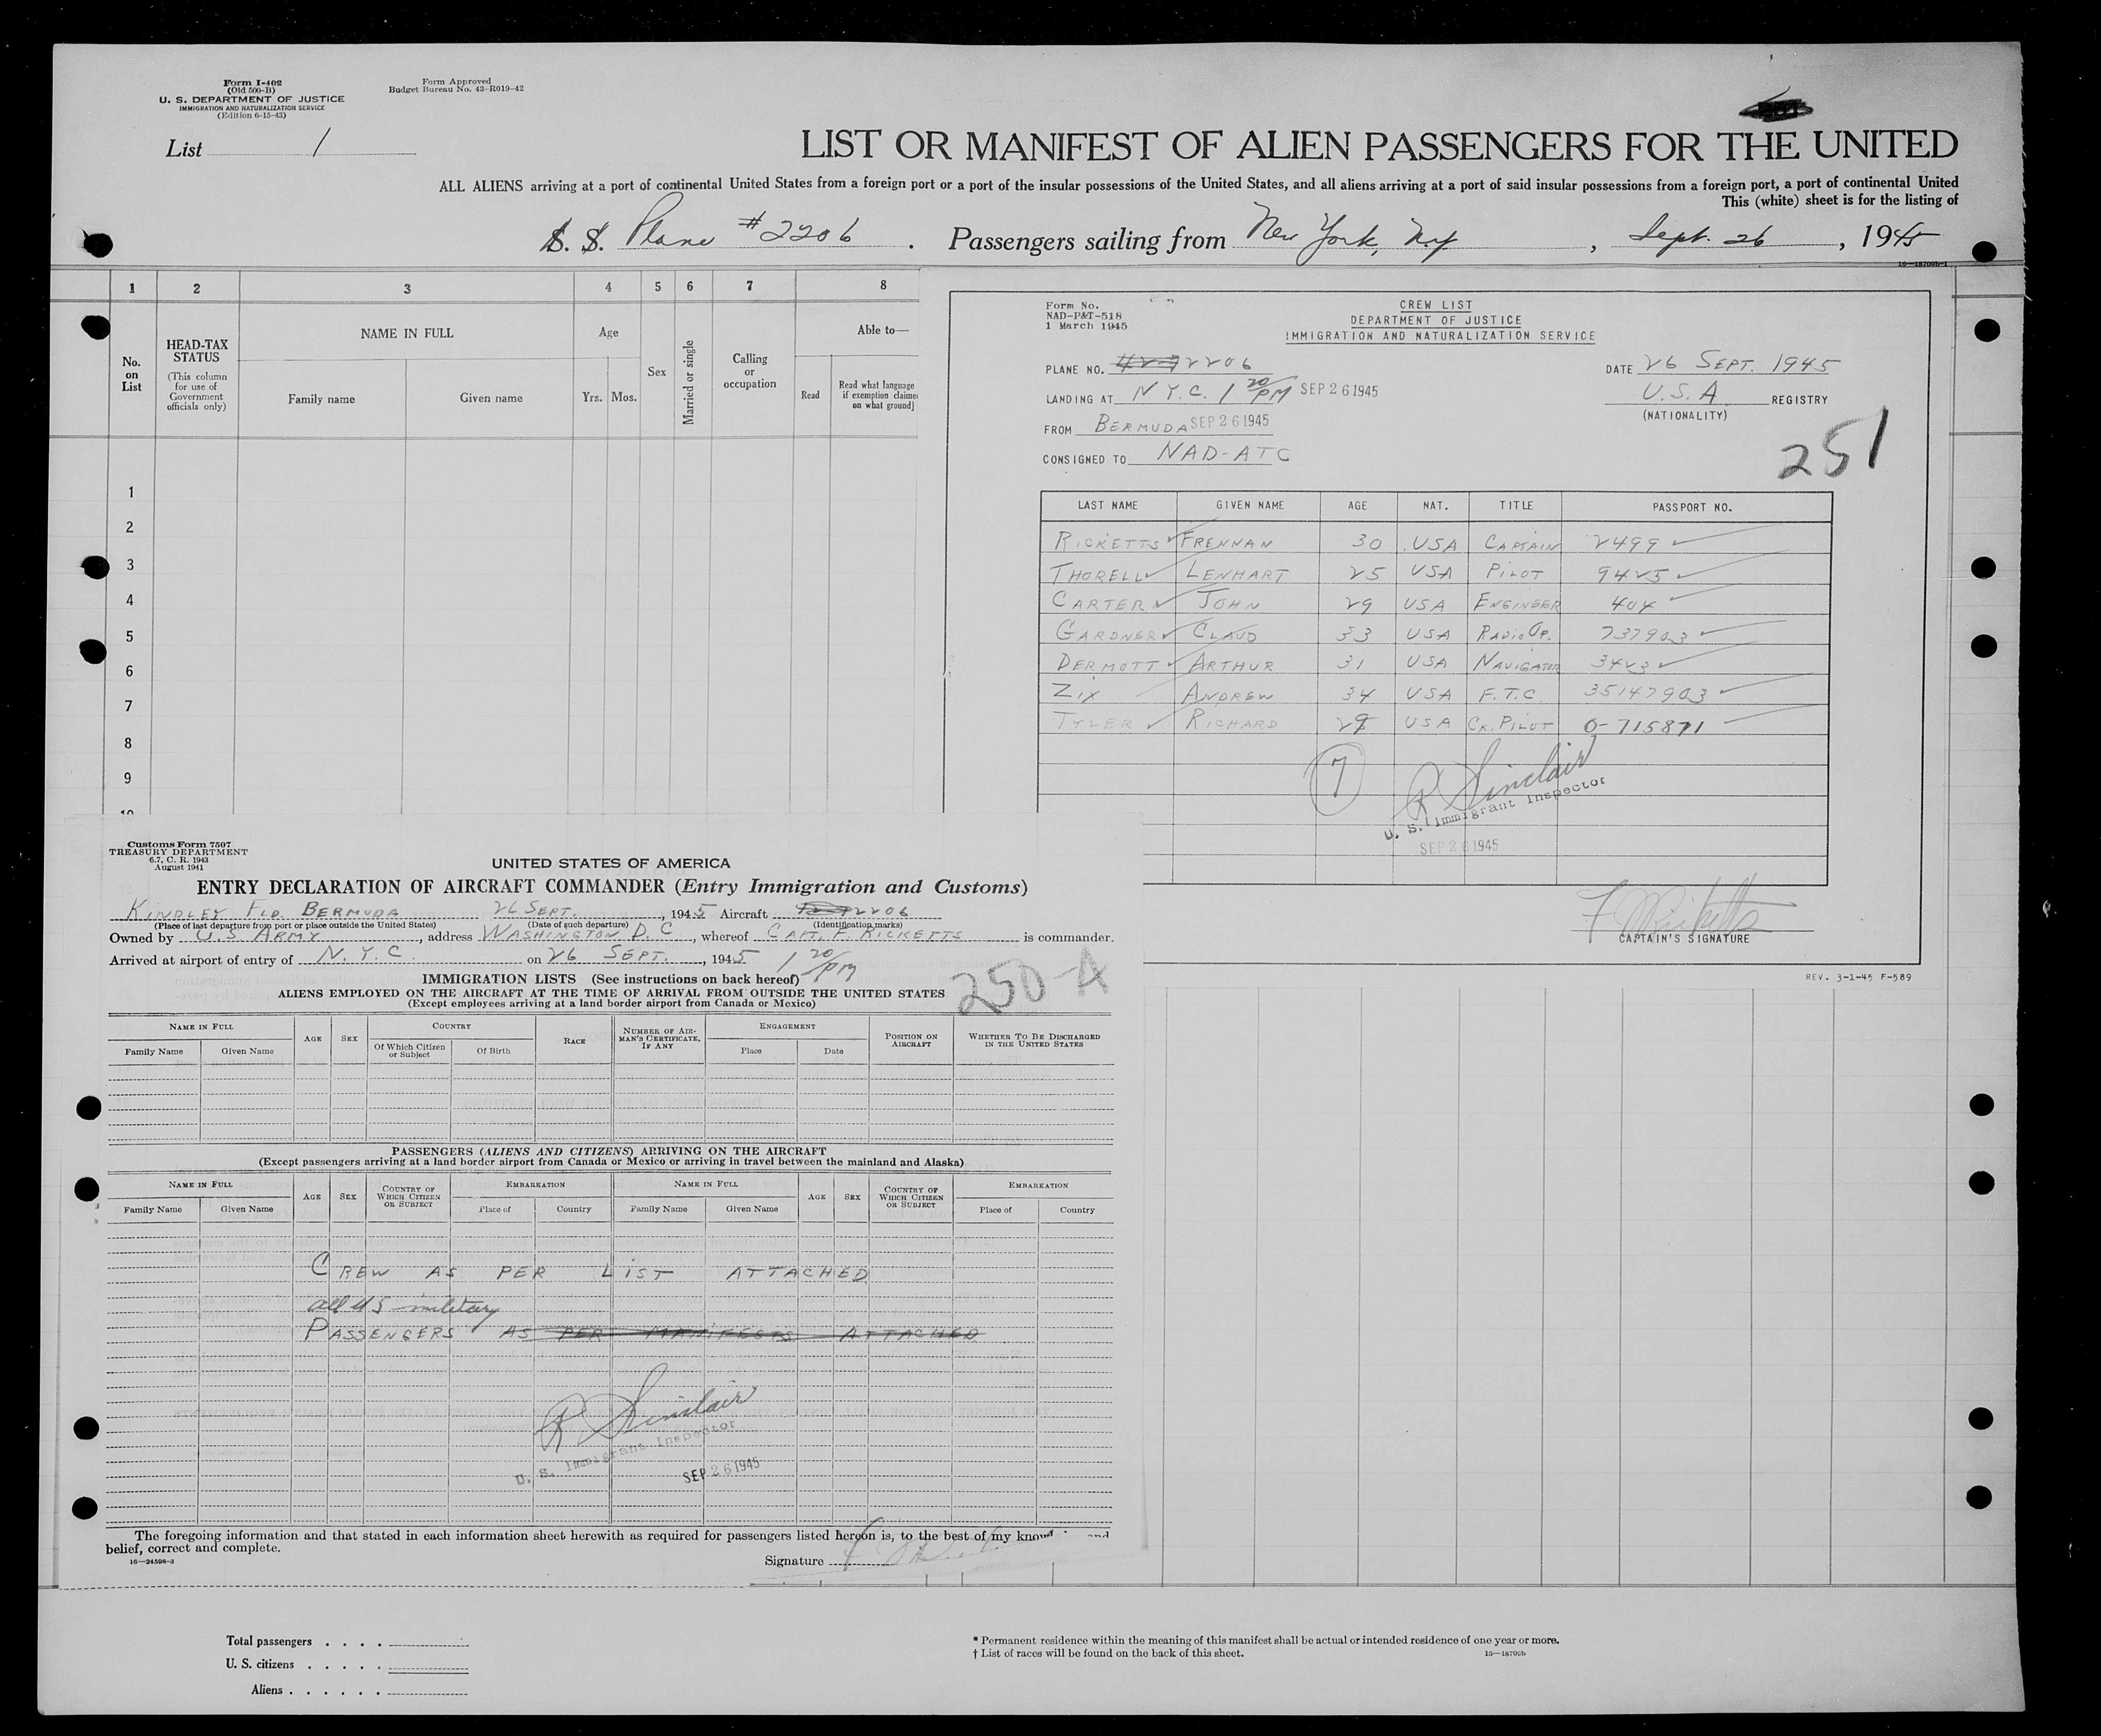 Form I-402
(Old 500-B)
U. S. DEPARTMENT OF JUSTICE
IMMIGRATION AND NATURALIZATION SERVICE
(Edition 6-15-43)
Form Approved
Budget Bureau No. 43-R019-42
List 1
LIST OR MANIFEST OF ALIEN PASSENGERS FOR THE UNITED
ALL ALIENS arriving at a port of continental United States from a foreign port or a port of the insular possessions of the United States, and all aliens arriving at a port of said insular possessions from a foreign port, a port of continental United
This (white) sheet is for the listing of
S. S. Plane #2206 . Passengers sailing from New York, N.Y. , Sept. 26 , 1945
16—18709b-1
1 2 3 4 5 6 7 8
No. on List
HEAD-TAX STATUS
(This column for use of Government officials only)
NAME IN FULL
Family name Given name
Age
Yrs. Mos.
Sex
Married or single
Calling or occupation
Able to—
Read
Read what language
if exemption claimed
on what ground]
1
2
3
4
5
6
7
8
9
10
Form No.
NAD-P&T-518
1 March 1945
CREW LIST
DEPARTMENT OF JUSTICE
IMMIGRATION AND NATURALIZATION SERVICE
PLANE NO. 2206
DATE 26 SEPT. 1945
LANDING AT N.Y.C. 1 20/PM SEP 26 1945
U.S.A REGISTRY
(NATIONALITY)
FROM BERMUDA SEP 26 1945
CONSIGNED TO NAD-ATC
251
LAST NAME GIVEN NAME AGE NAT. TITLE PASSPORT NO.
RICKETTS FRENNAN 30 USA CAPTAIN 2499
THORELL LENHART 25 USA PILOT 9425
CARTER JOHN 29 USA ENGINEER 404
GARDNER CLAUD 33 USA RADIO OP. 737903
DERMOTT ARTHUR 31 USA NAVIGATOR 3423
ZIX ANDREW 34 USA F.T.C. 35147903
TYLER RICHARD USA CK. PILOT 0-715871
7
R Sinclair
U. S. Immigrant Inspector
SEP 26 1945
F Ricketts
CAPTAIN'S SIGNATURE
REV. 3-1-45 F-589
Customs Form 7507
TREASURY DEPARTMENT
6.7, C. R. 1943
August 1941
UNITED STATES OF AMERICA
ENTRY DECLARATION OF AIRCRAFT COMMANDER (Entry Immigration and Customs)
KINDLEY FLD. BERMUDA 26 SEPT. , 1945 Aircraft 2206
(Place of last departure from port or place outside the United States) (Date of such departure) (Identification marks)
Owned by U.S ARMY , address WASHINGTON D.C , whereof CAPT. F. RICKETTS is commander.
Arrived at airport of entry of N.Y.C. on 26 SEPT. , 1945 1 20/PM
IMMIGRATION LISTS (See instructions on back hereof)
250-A
ALIENS EMPLOYED ON THE AIRCRAFT AT THE TIME OF ARRIVAL FROM OUTSIDE THE UNITED STATES
(Except employees arriving at a land border airport from Canada or Mexico)
NAME IN FULL
Family Name Given Name
AGE SEX
COUNTRY
Of Which Citizen or Subject Of Birth
RACE
NUMBER OF AIRMAN'S CERTIFICATE, IF ANY
ENGAGEMENT
Place Date
POSITION ON AIRCRAFT
WHETHER TO BE DISCHARGED IN THE UNITED STATES
PASSENGERS (ALIENS AND CITIZENS) ARRIVING ON THE AIRCRAFT
(Except passengers arriving at a land border airport from Canada or Mexico or arriving in travel between the mainland and Alaska)
NAME IN FULL AGE SEX COUNTRY OF WHICH CITIZEN OR SUBJECT EMBARKATION NAME IN FULL AGE SEX COUNTRY OF WHICH CITIZEN OR SUBJECT EMBARKATION
Family Name Given Name Place of Country Family Name Given Name Place of Country
CREW AS PER LIST ATTACHED
all US military
PASSENGERS AS PER MANIFESTS ATTACHED
R Sinclair
U. S. Immigrant Inspector
SEP 26 1945
The foregoing information and that stated in each information sheet herewith as required for passengers listed hereon is, to the best of my and
belief, correct and complete.
16—24598-3
Signature
Total passengers . . . .
U. S. citizens . . . . .
Aliens . . . . . .
* Permanent residence within the meaning of this manifest shall be actual or intended residence of one year or more.
† List of races will be found on the back of this sheet.
16—18709b